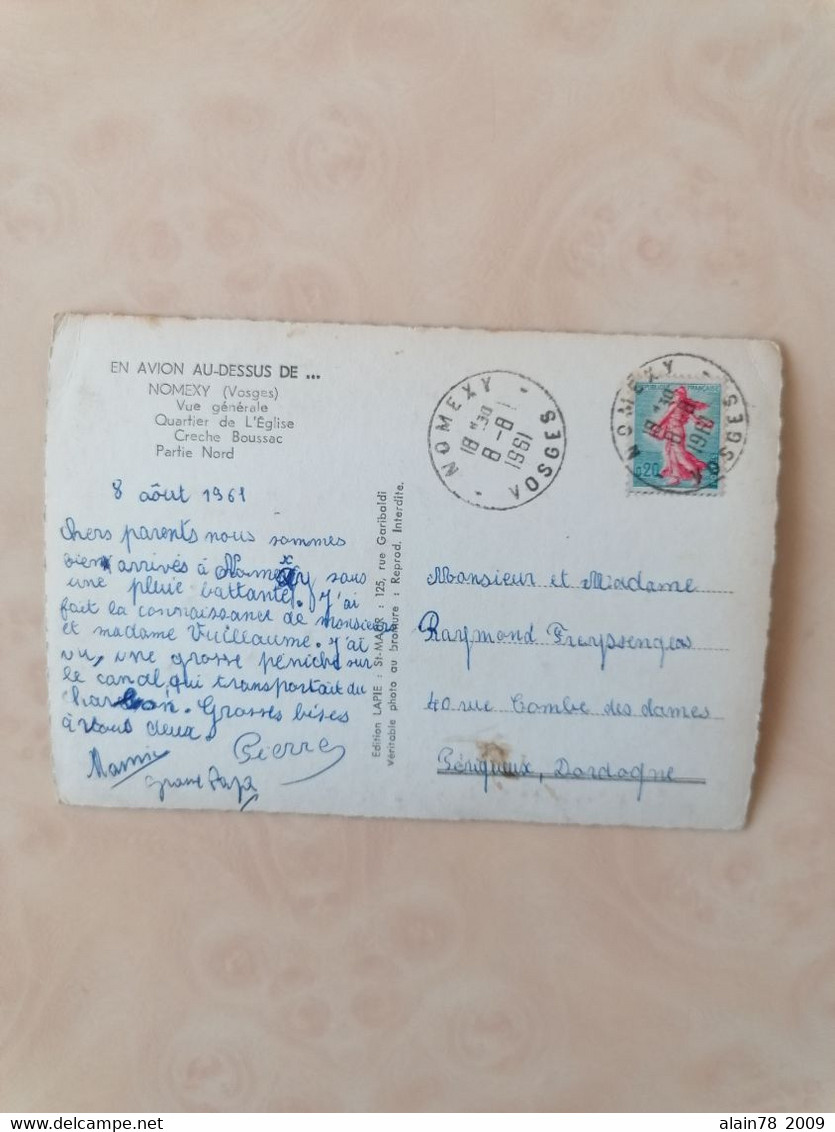 EN AVION AU-DESSUS DE ...
NOMEXY (Vosges)
Vue générale
Quartier de L'Église
Creche Boussac
Partie Nord
8 août 1961
Chers parents nous sommes
bien arrivés à Nomexy sous
une pluie battante. J'ai
fait la connaissance de monsieur
et madame Vuillaume. J'ai
vu, une grosse péniche sur
le canal, qui transportait du
charbon. Grosses bises
à vous deux.
Pierre
Mamie
Grand Papa
Edition LAPIE : St-MAUR : 125, rue Garibaldi
Véritable photo au bromure : Reprod. Interdite.
NOMEXY
18 H 30
8 - 8
1961
VOSGES
NOMEXY
18 H 30
8 - 8
1961
VOSGES
RÉPUBLIQUE FRANÇAISE
0,20
Monsieur et Madame
Raymond
40 rue Combe des dames
Périgueux, Dordogne
alain78 2009